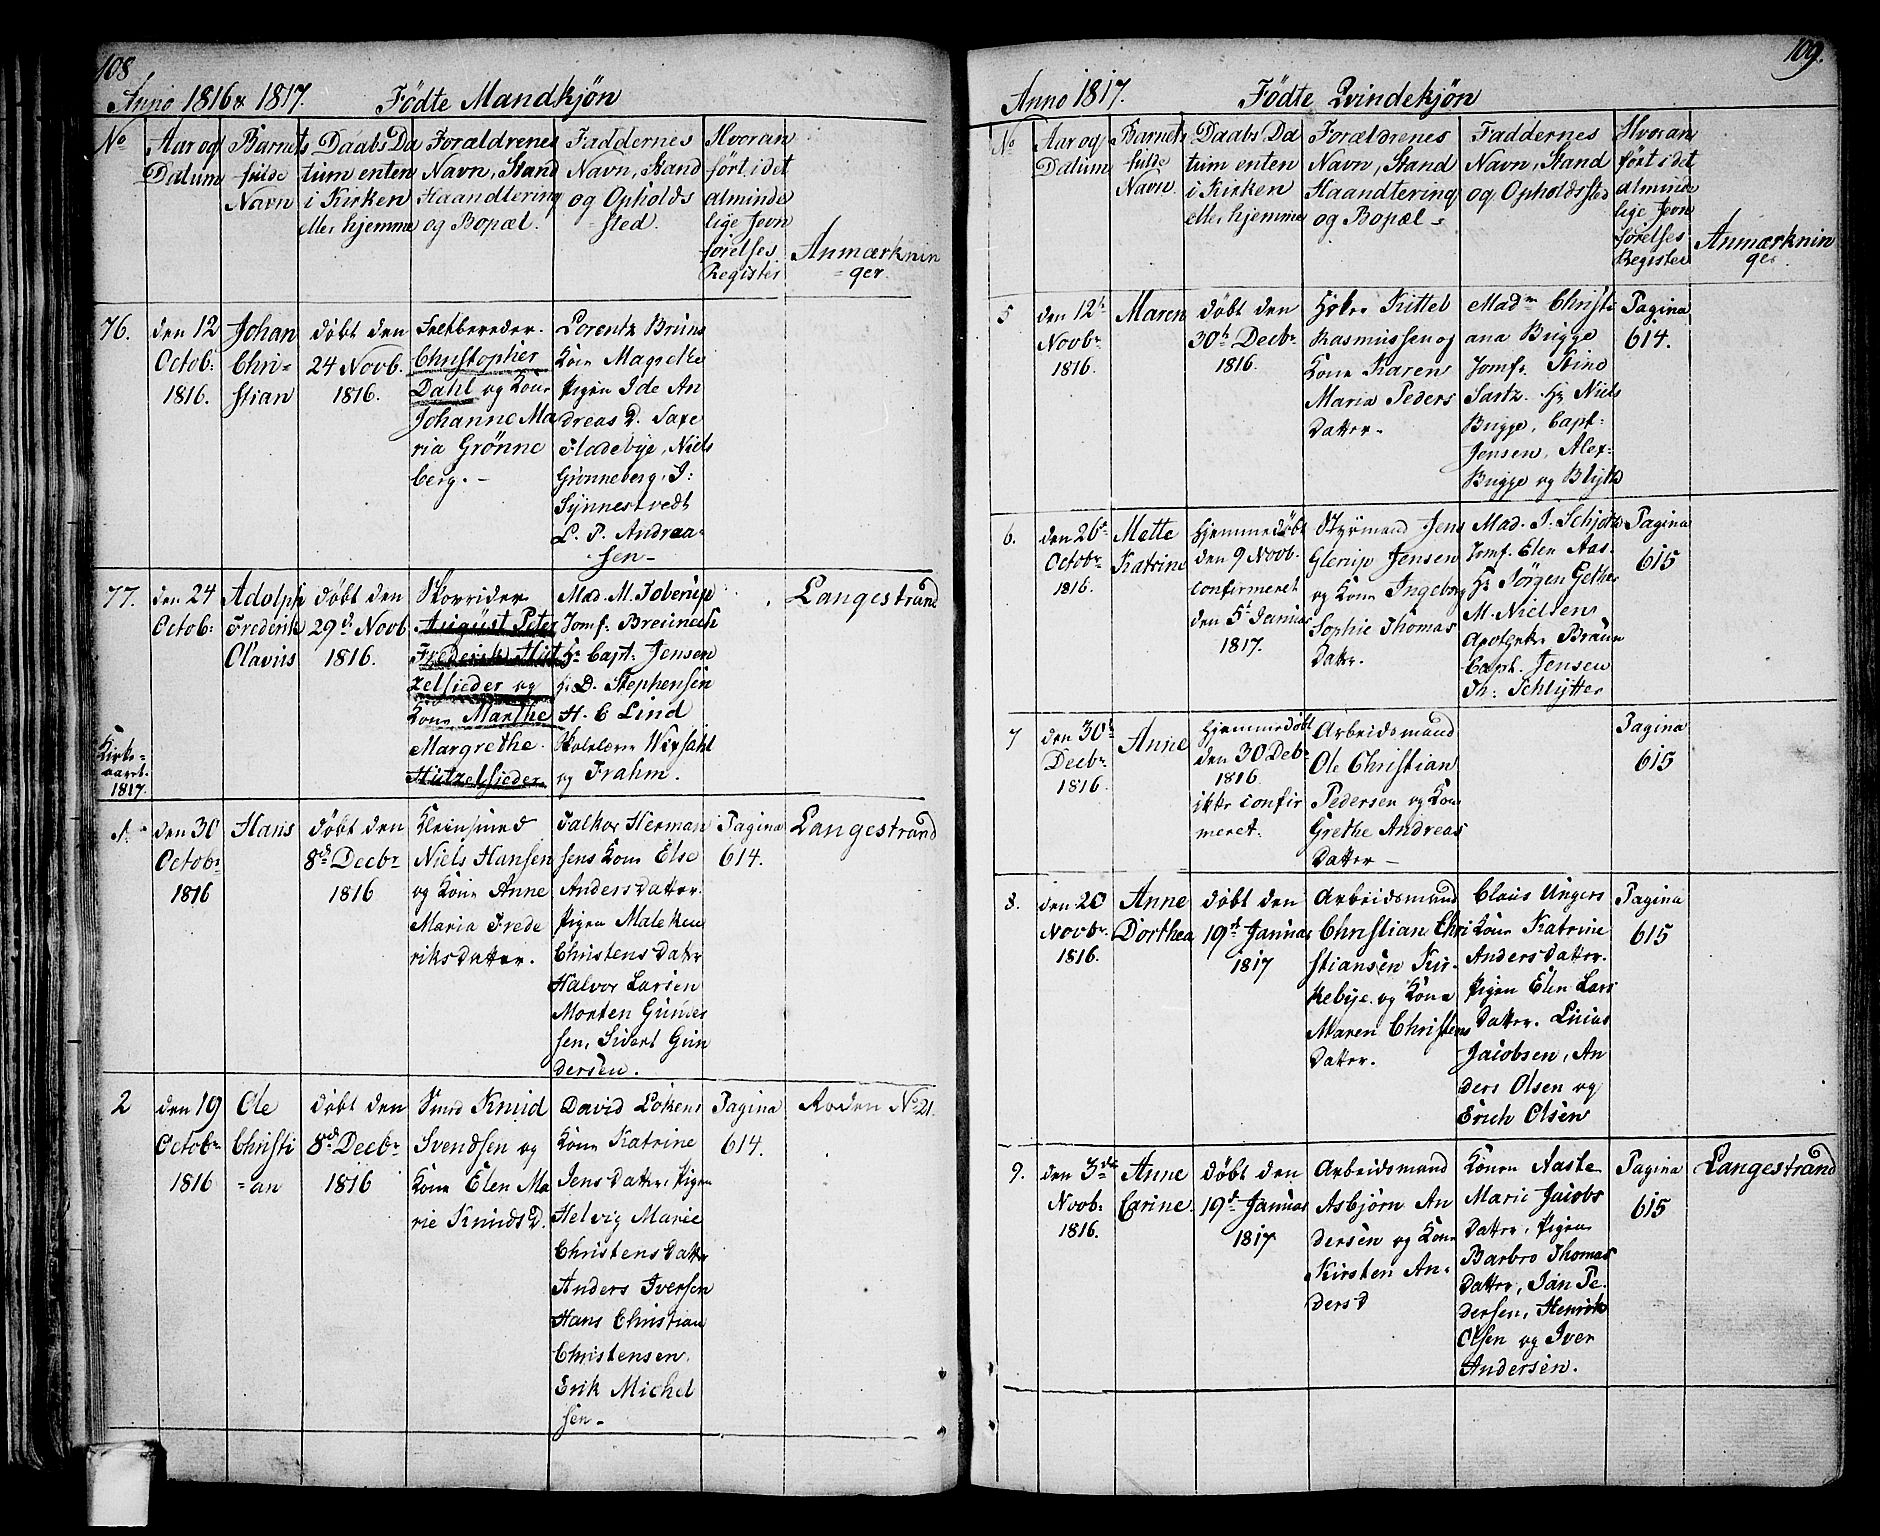 108
Anno 1816 & 1817. Födte Mandkjön
No
Aar og
Datum
Barnets
fulde
Navn
Daabs Da
tum enten
i Kirken
eller hjemme
Forældrenes
Navn, Stand
Haandtering
og Bopæl.
Faddernes
Navn, Stand
og Opholds
=sted.
Hvor an
ført i det
alminde
lige Jevn
förelses
Register
Anmærknin
=ger.
76.
den 12
Octob:
1816.
Johan
Chri=
stian
döbt den
24 Novb.
1816.
Christopher
Dahl og Kone
Johanne Ma
ria Grönne
berg. -
Lorentz Bruns
Kone
Pigen Ide An
dreas D.
Fladebye, Niels
Grönneberg, I:
Synnestvedt
L. P. Andrea-
sen -
77.
den 24
Octob:
Adolph
Frederik
Olavus
döbt den
29d Novb
1816.
Skovrider
August Peter
Frederik Hüt
zelsieder og
Kone Marthe
Margrethe
Hützelsieder
Mad. M.
Jomf. Breuneck
Hr Capt: Jensen
D. Stephensen
H. C Lind
Skolelærer Wexsahl
og Frahm.
Langestrand
Kirke-
aaret
1817.
1.
den 30
Octobr
1816
Hans
döbt den
8de Decbr
1816
Kleinsmed
Niels Hansen
og Kone Anne
Maria Frede
riksdatter.
Falkor Herman
sens Kone Else
Andersdatter.
Pigen Maleken
Christensdatr
Halvor Larsen
Morten Gunder
sen, Sivert Gun
dersen.
Pagina
614.
Langestrand
2
den 19
Octobr
1816
Ole
Christi
=an
döbt den
8d Decbr
1816
Smed Knud
Svendsen og
Kone Elen Ma
rie Knuds D.
David Lökens
Kone Katrine
Jensdatter, Pigen
Helvig Marie
Christensdattr
Anders Iversen
Hans Christian
Christensen,
Erik Michel
sen -
Pagina
614.
Roden No 21.
109.
Anno 1817. Födte Qvindekjön
No
Aar og
Datum
Barnets
fulde
Navn
Daabs Da
tum enten
i Kirken
eller hjemme
Forældrenes
Navn, Stand
Haandtering
og Bopæl -
Faddernes
Navn, Stand
og Opholdssted
Hvor an
ført i det
alminde
lige Jevn
förelses
Register
Anmærknin
ger
5
den 12t
Novbr
1816.
Maren
döbt den
30t Decbr
1816.
Kittel
Rasmussen og
Kone Karen
Maria Peders
datter.
Madm Christi
ana Bugge
Jomfr Stine
Hr Niels
Bugge, Capt-
Jensen, Alex-
Bugge og Blyth
Pagina
614.
6.
den 26d
Octobr
1816.
Mette
Katrine
Hjemmedöbt
den 9 Novb.
confirmeret
den 5t Januar
1817.
Styrmand Jens
Glerup Jensen
og Kone Ingeborg
Sophie Thomas
datter.
Mad. I. Schjötts
Jomf. Elen Aas-
Hr Jörgen Gether
M. Nielsens
Apotheker Braun
Capt. Jensen
Th: Schlytter
Pagina
615
7
den 30t
Decbr
1816.
Anne
Hjemmedöbt
den 30 Debr
1816.
ikke confir
meret.
Arbeidsmand
Ole Christian
Pedersen og Kone
Grethe Andreas
datter -
Pagina
615
8.
den 20
Novbr
1816.
Anne
Dorthea
döbt den
19d Januar
1817
Arbeidsmand
Christian Chri
stiansen Kir-
kebye og Kone
Maren Christens
datter.
Claus Ungers
Kone Katrine
Andersdatter.
Pigen Elen Lars
datter. Lucas
Jacobsen, An
ders Olsen og
Erich Olsen
Pagina
615
9.
den 3die
Novb:
1816.
Anne
Carine
döbt den
19d Januar
1817
Arbeidsmand
Asbjörn An
dersen og Kone
Kirsten An-
dersd
Konen Aaste
Marie Jacobs
datter, Pigen
Barbro Thomas
datter, Jan Pe-
dersen, Henrik
Olsen og Iver
Andersen.
Pagina
615
Langestrand